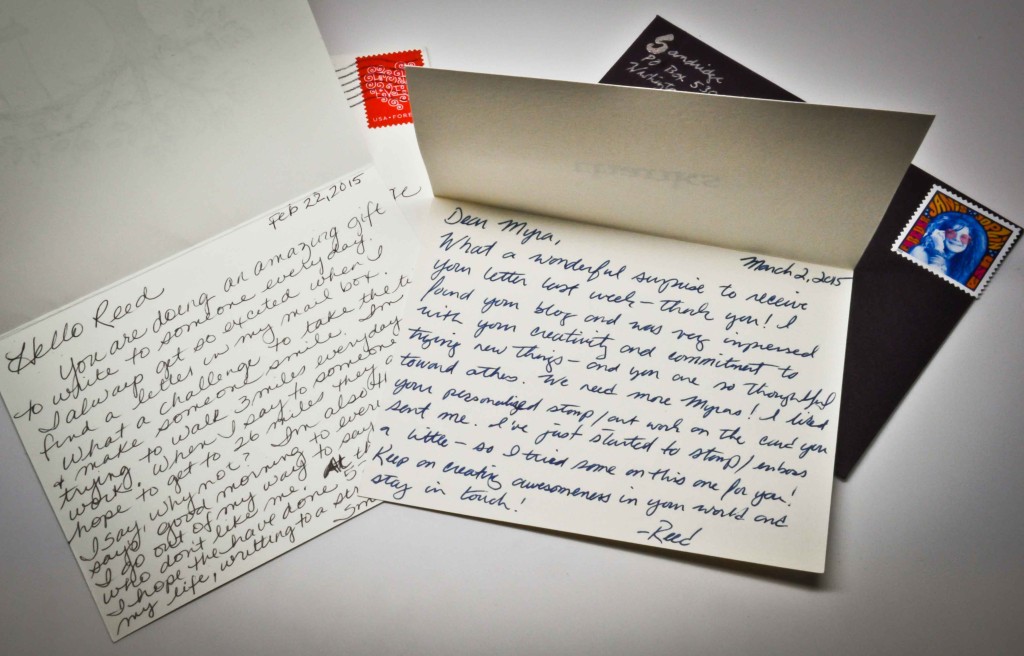 Feb 22, 2015
Hello Reed
You are doing an amazing gift
to write to someone every day.
I always get so excited when I
find a letter in my mail box.
What a challenge to take the
& make someone smile. I'm
trying to walk 3 miles everyday
work. When I say to someone
hope to get to 26 miles they
I say, why not? I'm also
says good morning to every
I go out of my way to say
who don't like me.
I hope the have done 5
my life, writting to a
Dear Myra,
March 2, 2015
What a wonderful surprise to receive
your letter last week – thank you! I
found your blog and was very impressed
with your creativity and commitment to
trying new things – and you are so thoughtful
toward others. We need more Myras! I liked
your personalized stamp/art work on the card you
sent me. I've just started to stamp/emboss
a little – so I tried some on this one for you!
Keep on creating awesomeness in your world and
stay in touch!
-Reed
Sandridge
PO Box
USA
JANIS JOPLIN
thanks